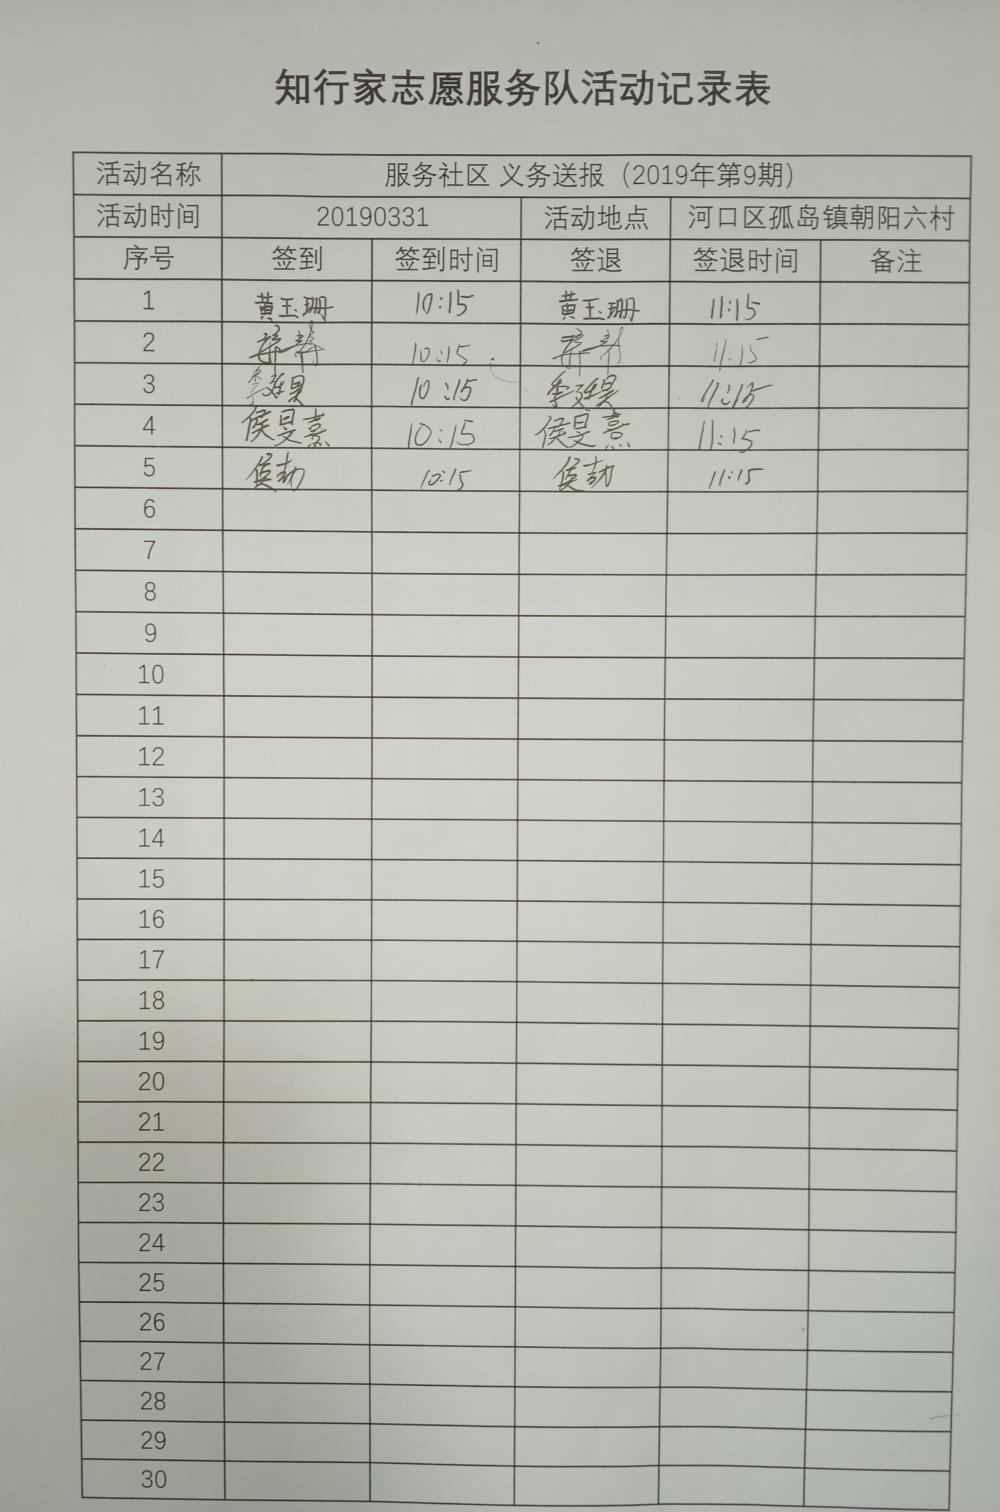 知行家志愿服务队活动记录表
活动名称 服务社区 义务送报（2019年第9期）
活动时间 20190331 活动地点 河口区孤岛镇朝阳六村
序号 签到 签到时间 签退 签退时间 备注
1 黄玉珊 10:15 黄玉珊 11:15
2 10:15 11:15
3 李廷昊 10:15 李廷昊 11:15
4 侯旻熹 10:15 侯旻熹 11:15
5 侯劼 10:15 侯劼 11:15
6
7
8
9
10
11
12
13
14
15
16
17
18
19
20
21
22
23
24
25
26
27
28
29
30